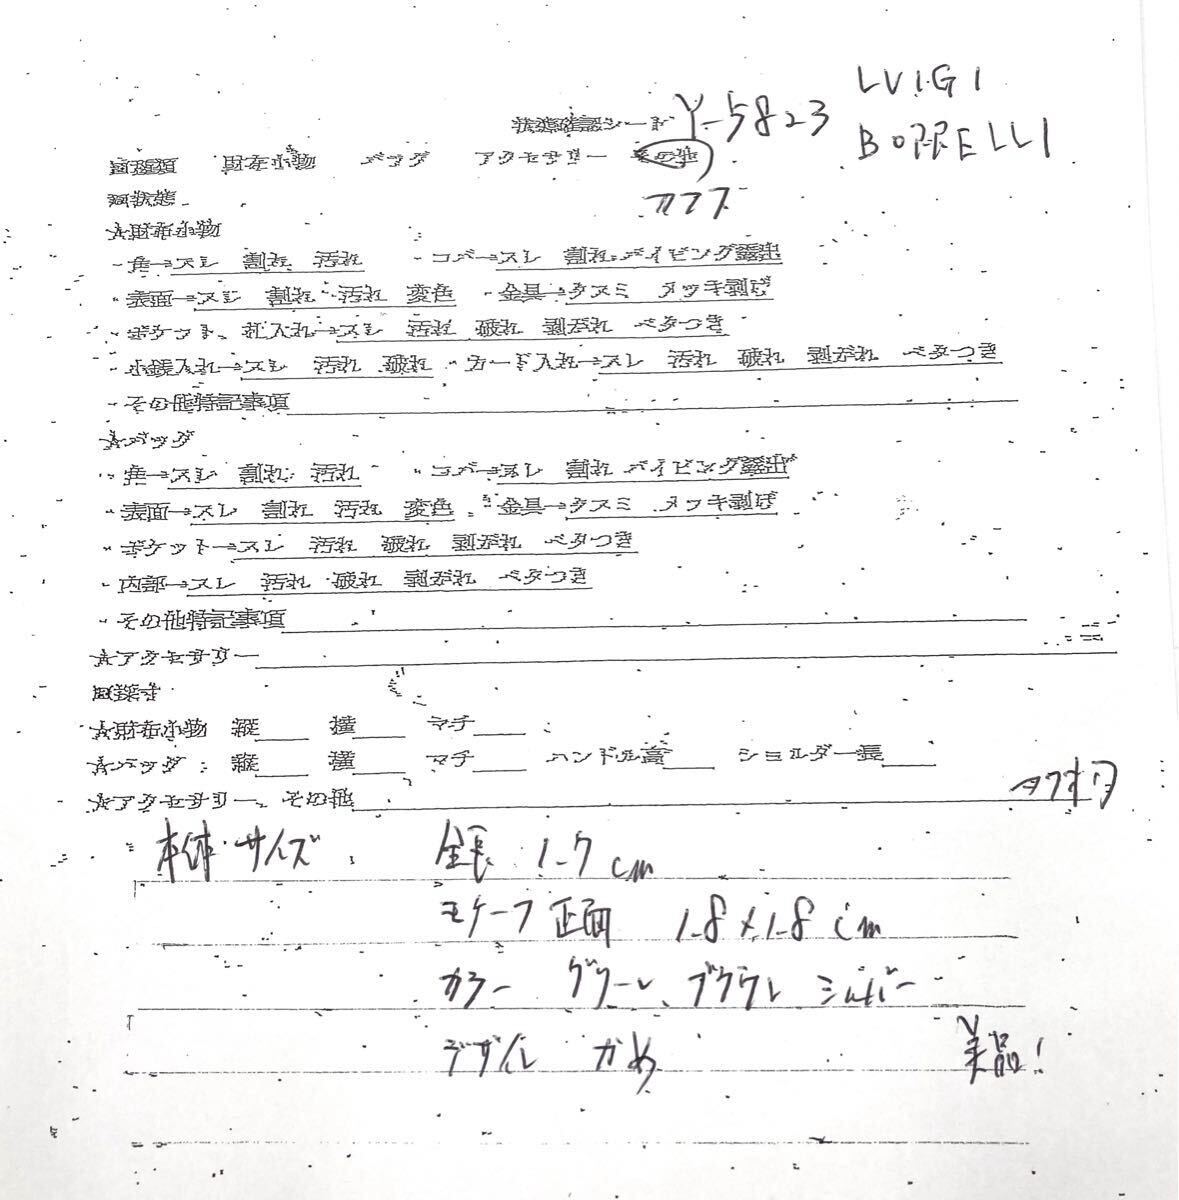 状態確認シート Y-5823 LUIGI
BORRELLI
回種類 財布小物 バッグ アクセサリー その他
カフス
回状態
★財布小物
・角→スレ 割れ 汚れ ・コバ→スレ 割れ パイピング露出
・表面→スレ 割れ 汚れ 変色 ・金具→クスミ メッキ剥げ
・ポケット、札入れ→スレ 汚れ 破れ 剥がれ ベタつき
・小銭入れ→スレ 汚れ 破れ ・カード入れ→スレ 汚れ 破れ 剥がれ ベタつき
・その他特記事項
★バッグ
・角→スレ 割れ 汚れ ・コバ→スレ 割れ パイピング露出
・表面→スレ 割れ 汚れ 変色 ・金具→クスミ メッキ剥げ
・ポケット→スレ 汚れ 破れ 剥がれ ベタつき
・内部→スレ 汚れ 破れ 剥がれ ベタつき
・その他特記事項
★アクセサリー
回採寸
★財布小物 縦 横 マチ
★バッグ 縦 横 マチ ハンドル高 ショルダー長
★アクセサリー、その他
本体・サイズ 全長 1.7cm
モチーフ正面 1.8×1.8cm
カラー グリーン ブラウン シルバー
デザイン かめ 美品!